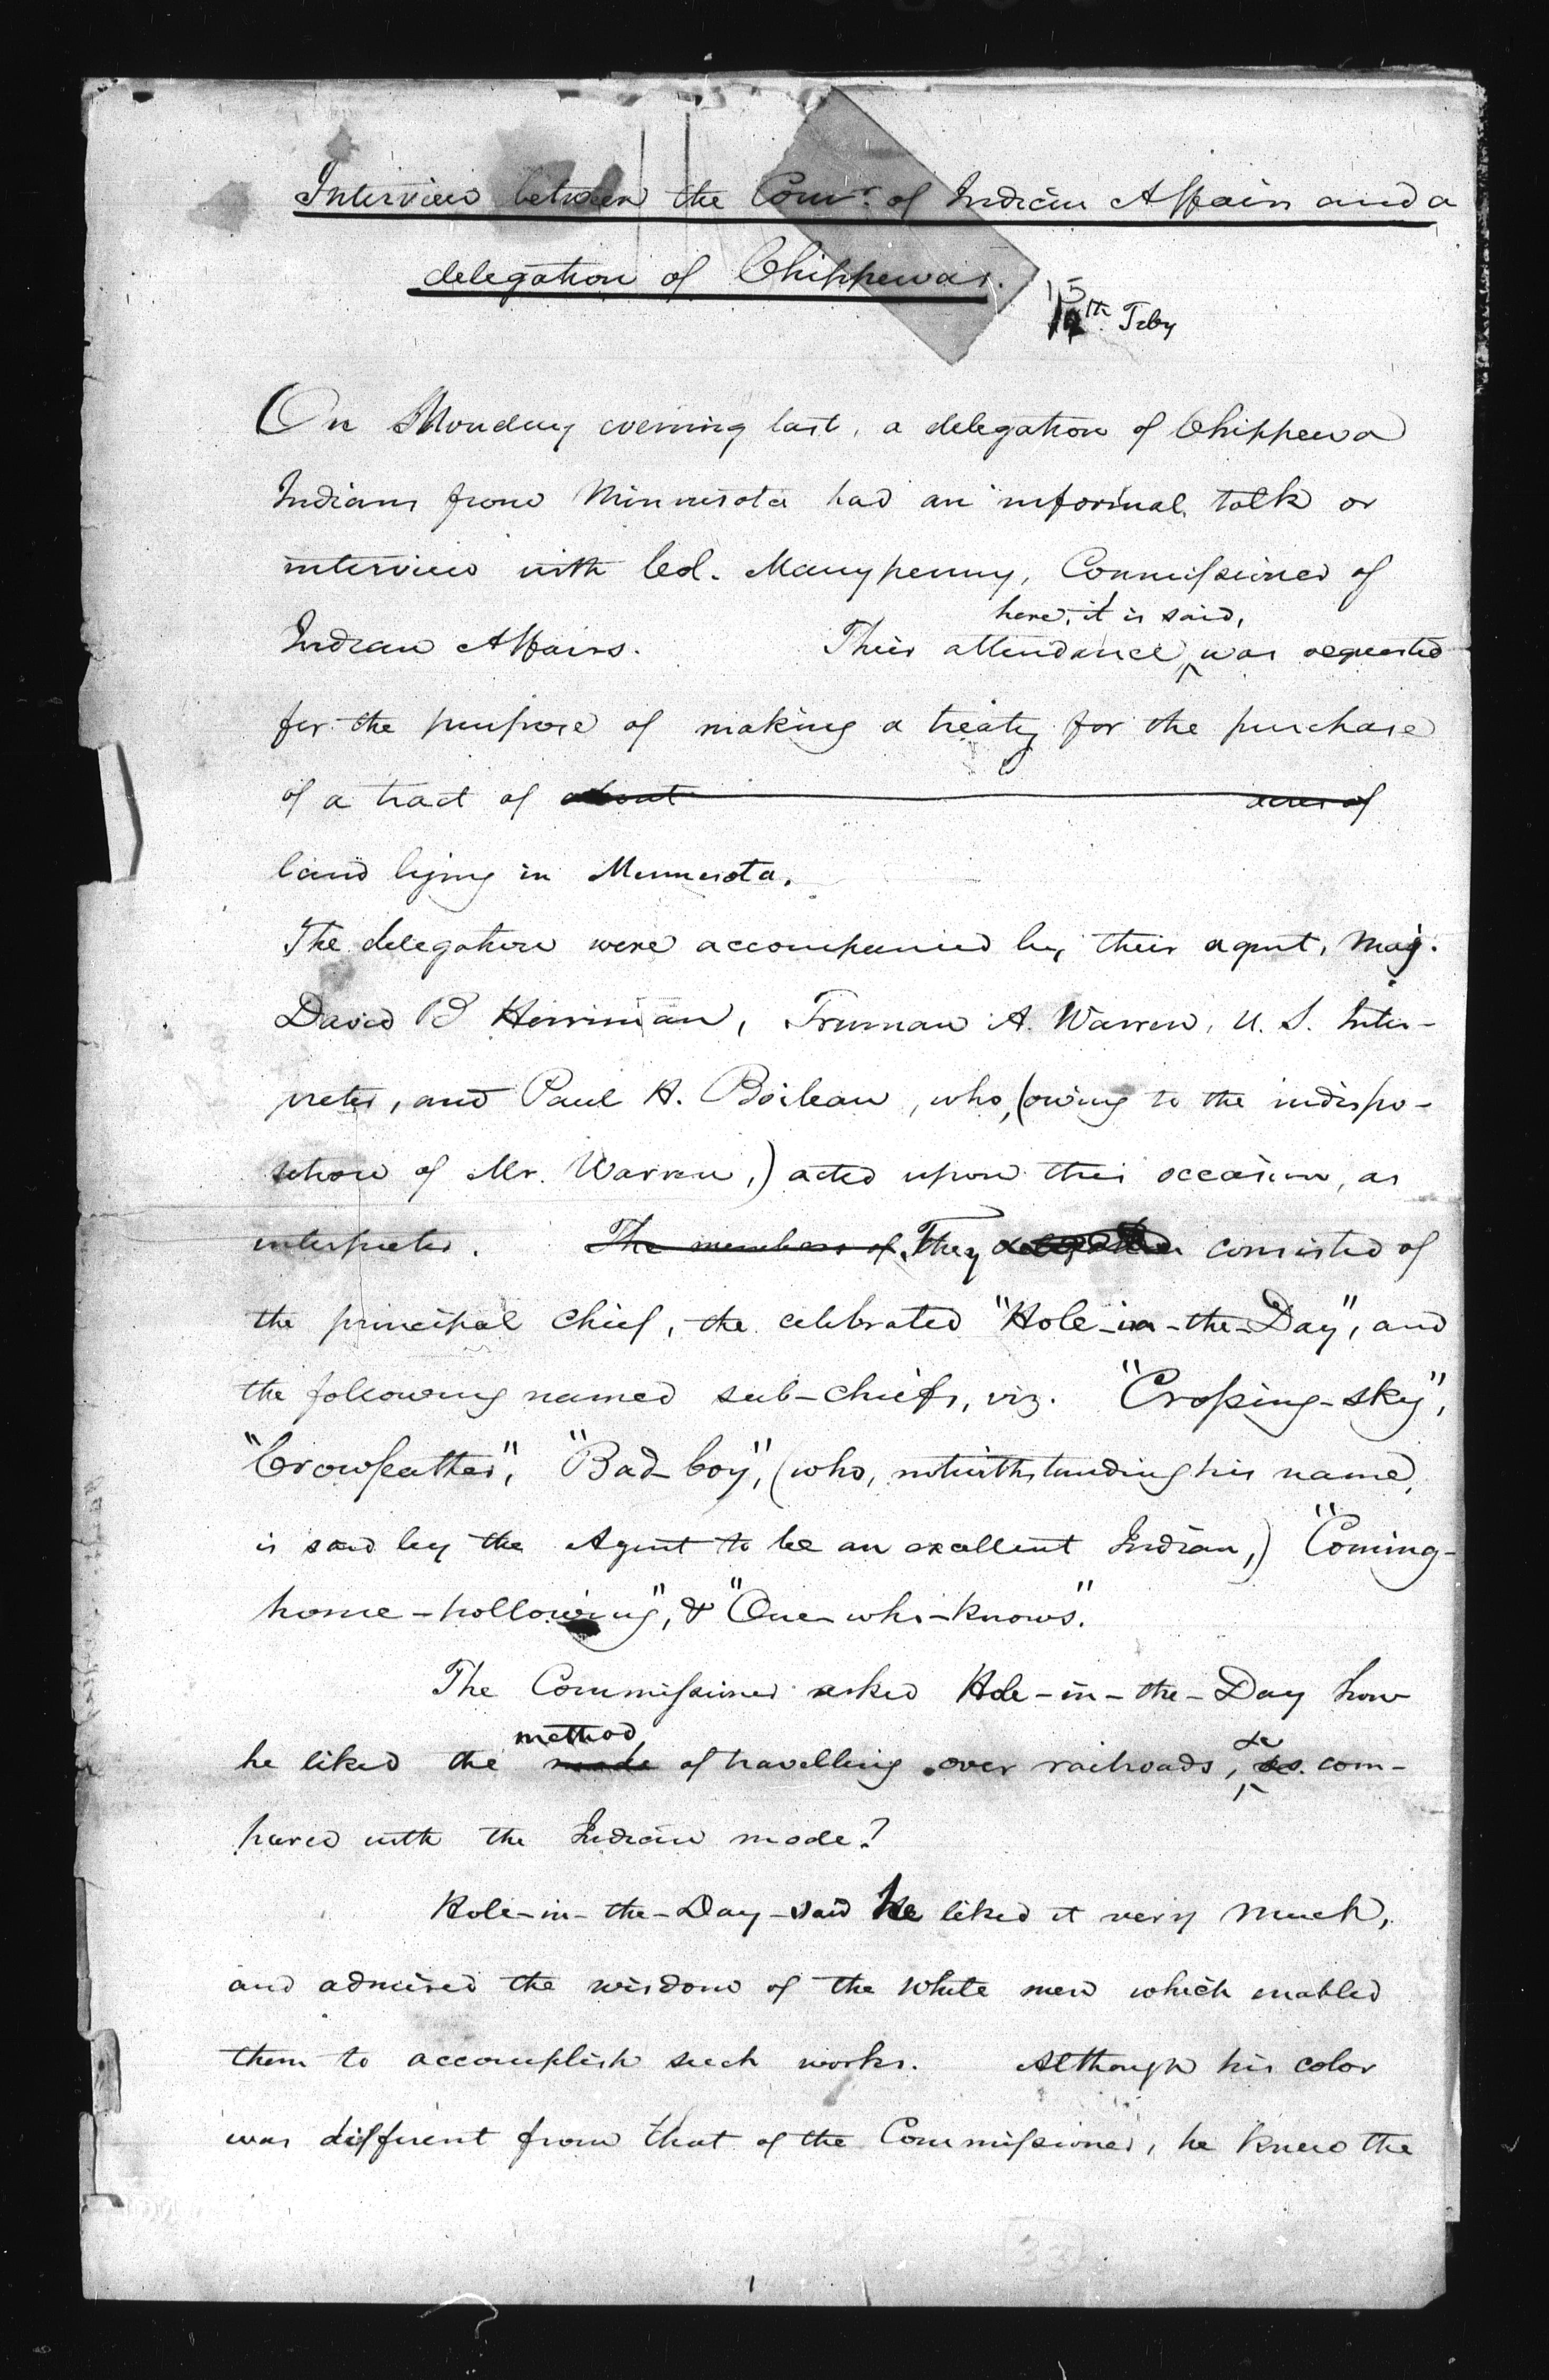 Interview between the Comr. of Indian Affairs and a
delegation of Chippewas.
15th Feby
On Monday evening last, a delegation of Chippewa
Indians from Minnesota had an informal talk or
interview with Col. Manypenny, Commissioner of
here, it is said,
Indian Affairs. Their attendance was requested
for the purpose of making a treaty for the purchase
of a tract of about acres of
land lying in Minnesota.
The delegation were accompanied by their agent, Maj.
David B Herriman, Truman A. Warren, U. S. Inter-
preter, and Paul H. Boileau, who, (owing to the indispo-
sition of Mr. Warren,) acted upon this occasion, as
interpreter. The members of They consisted of
the principal chief, the celebrated "Hole-in-the-Day", and
the following named sub-chiefs, viz. "Crossing-sky",
"Crowfeather", "Bad-boy", (who, notwithstanding his name,
is said by the Agent to be an excellent Indian,) "Coming-
home-hollowing", & "One-who-knows".
The Commissioner asked Hole-in-the-Day how
method
he liked the mode of travelling over railroads, as com-
pared with the Indian mode?
Hole-in-the-Day-said he liked it very much,
and admired the wisdom of the white men which enabled
them to accomplish such works. Although his color
was different from that of the Commissioner, he knew the
33
1